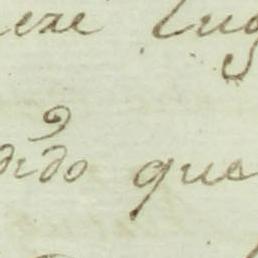 eze Lug
dido que